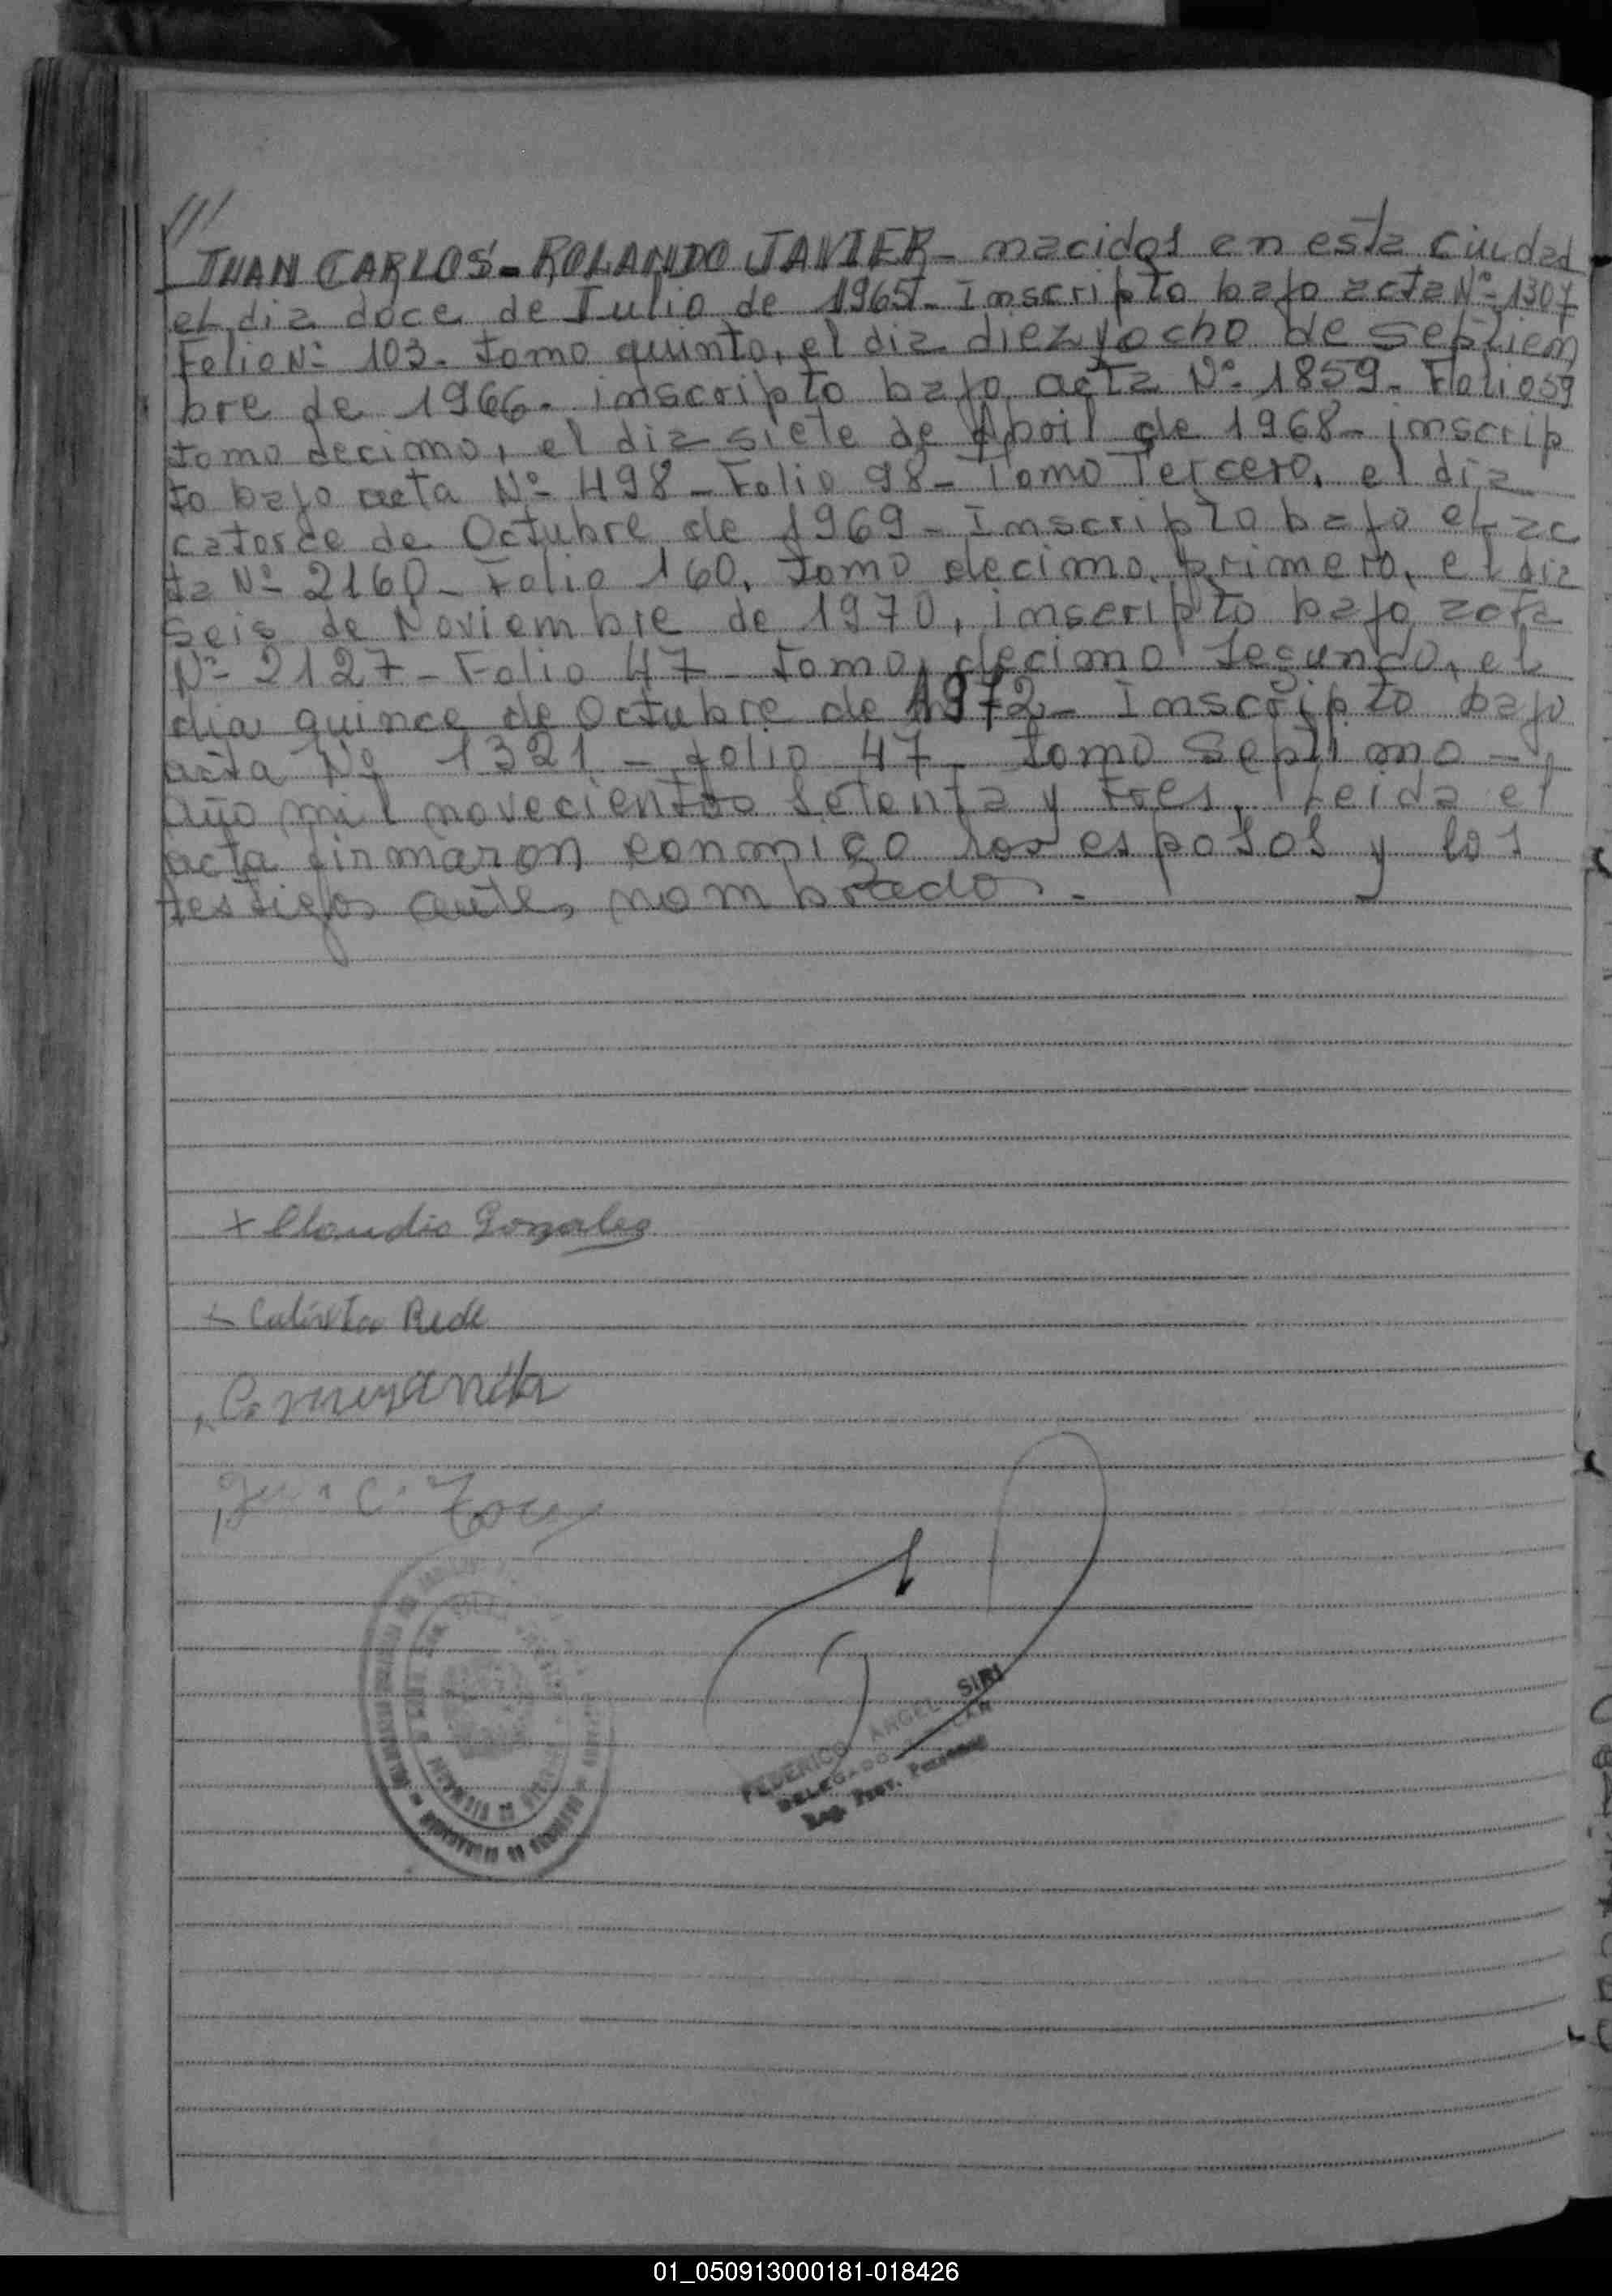 ///
JUAN CARLOS - ROLANDO JAVIER - nacidos en esta ciudad
el dia doce de Julio de 1965 - Inscripto bajo acta Nº- 1307
Folio Nº 103 - tomo quinto, el dia diez y ocho de septiem
bre de 1966 - inscripto bajo acta Nº- 1859 - Folio 59
tomo decimo, el dia siete de Abril de 1968 - inscrip
to bajo acta Nº- 498 - Folio 98 - Tomo Tercero, el dia
catorce de Octubre de 1969 - Inscripto bajo el ac
ta Nº- 2160 - Folio 160, tomo decimo primero, el dia
seis de Noviembre de 1970, inscripto bajo acta
Nº- 2127 - Folio 47 - tomo decimo segundo, el
dia quince de Octubre de 1972 - Inscripto bajo
acta Nº 1321 - folio 47 - tomo septimo -
año mil novecientos setenta y tres, Leida el
acta firmaron conmigo los esposos y los
testigos ante, nombrados.-
+ Claudio Gonzales
Juan C.
FEDERICO ANGEL SIRI
DELEGADO
Reg. Prov. Personas
01_050913000181-018426